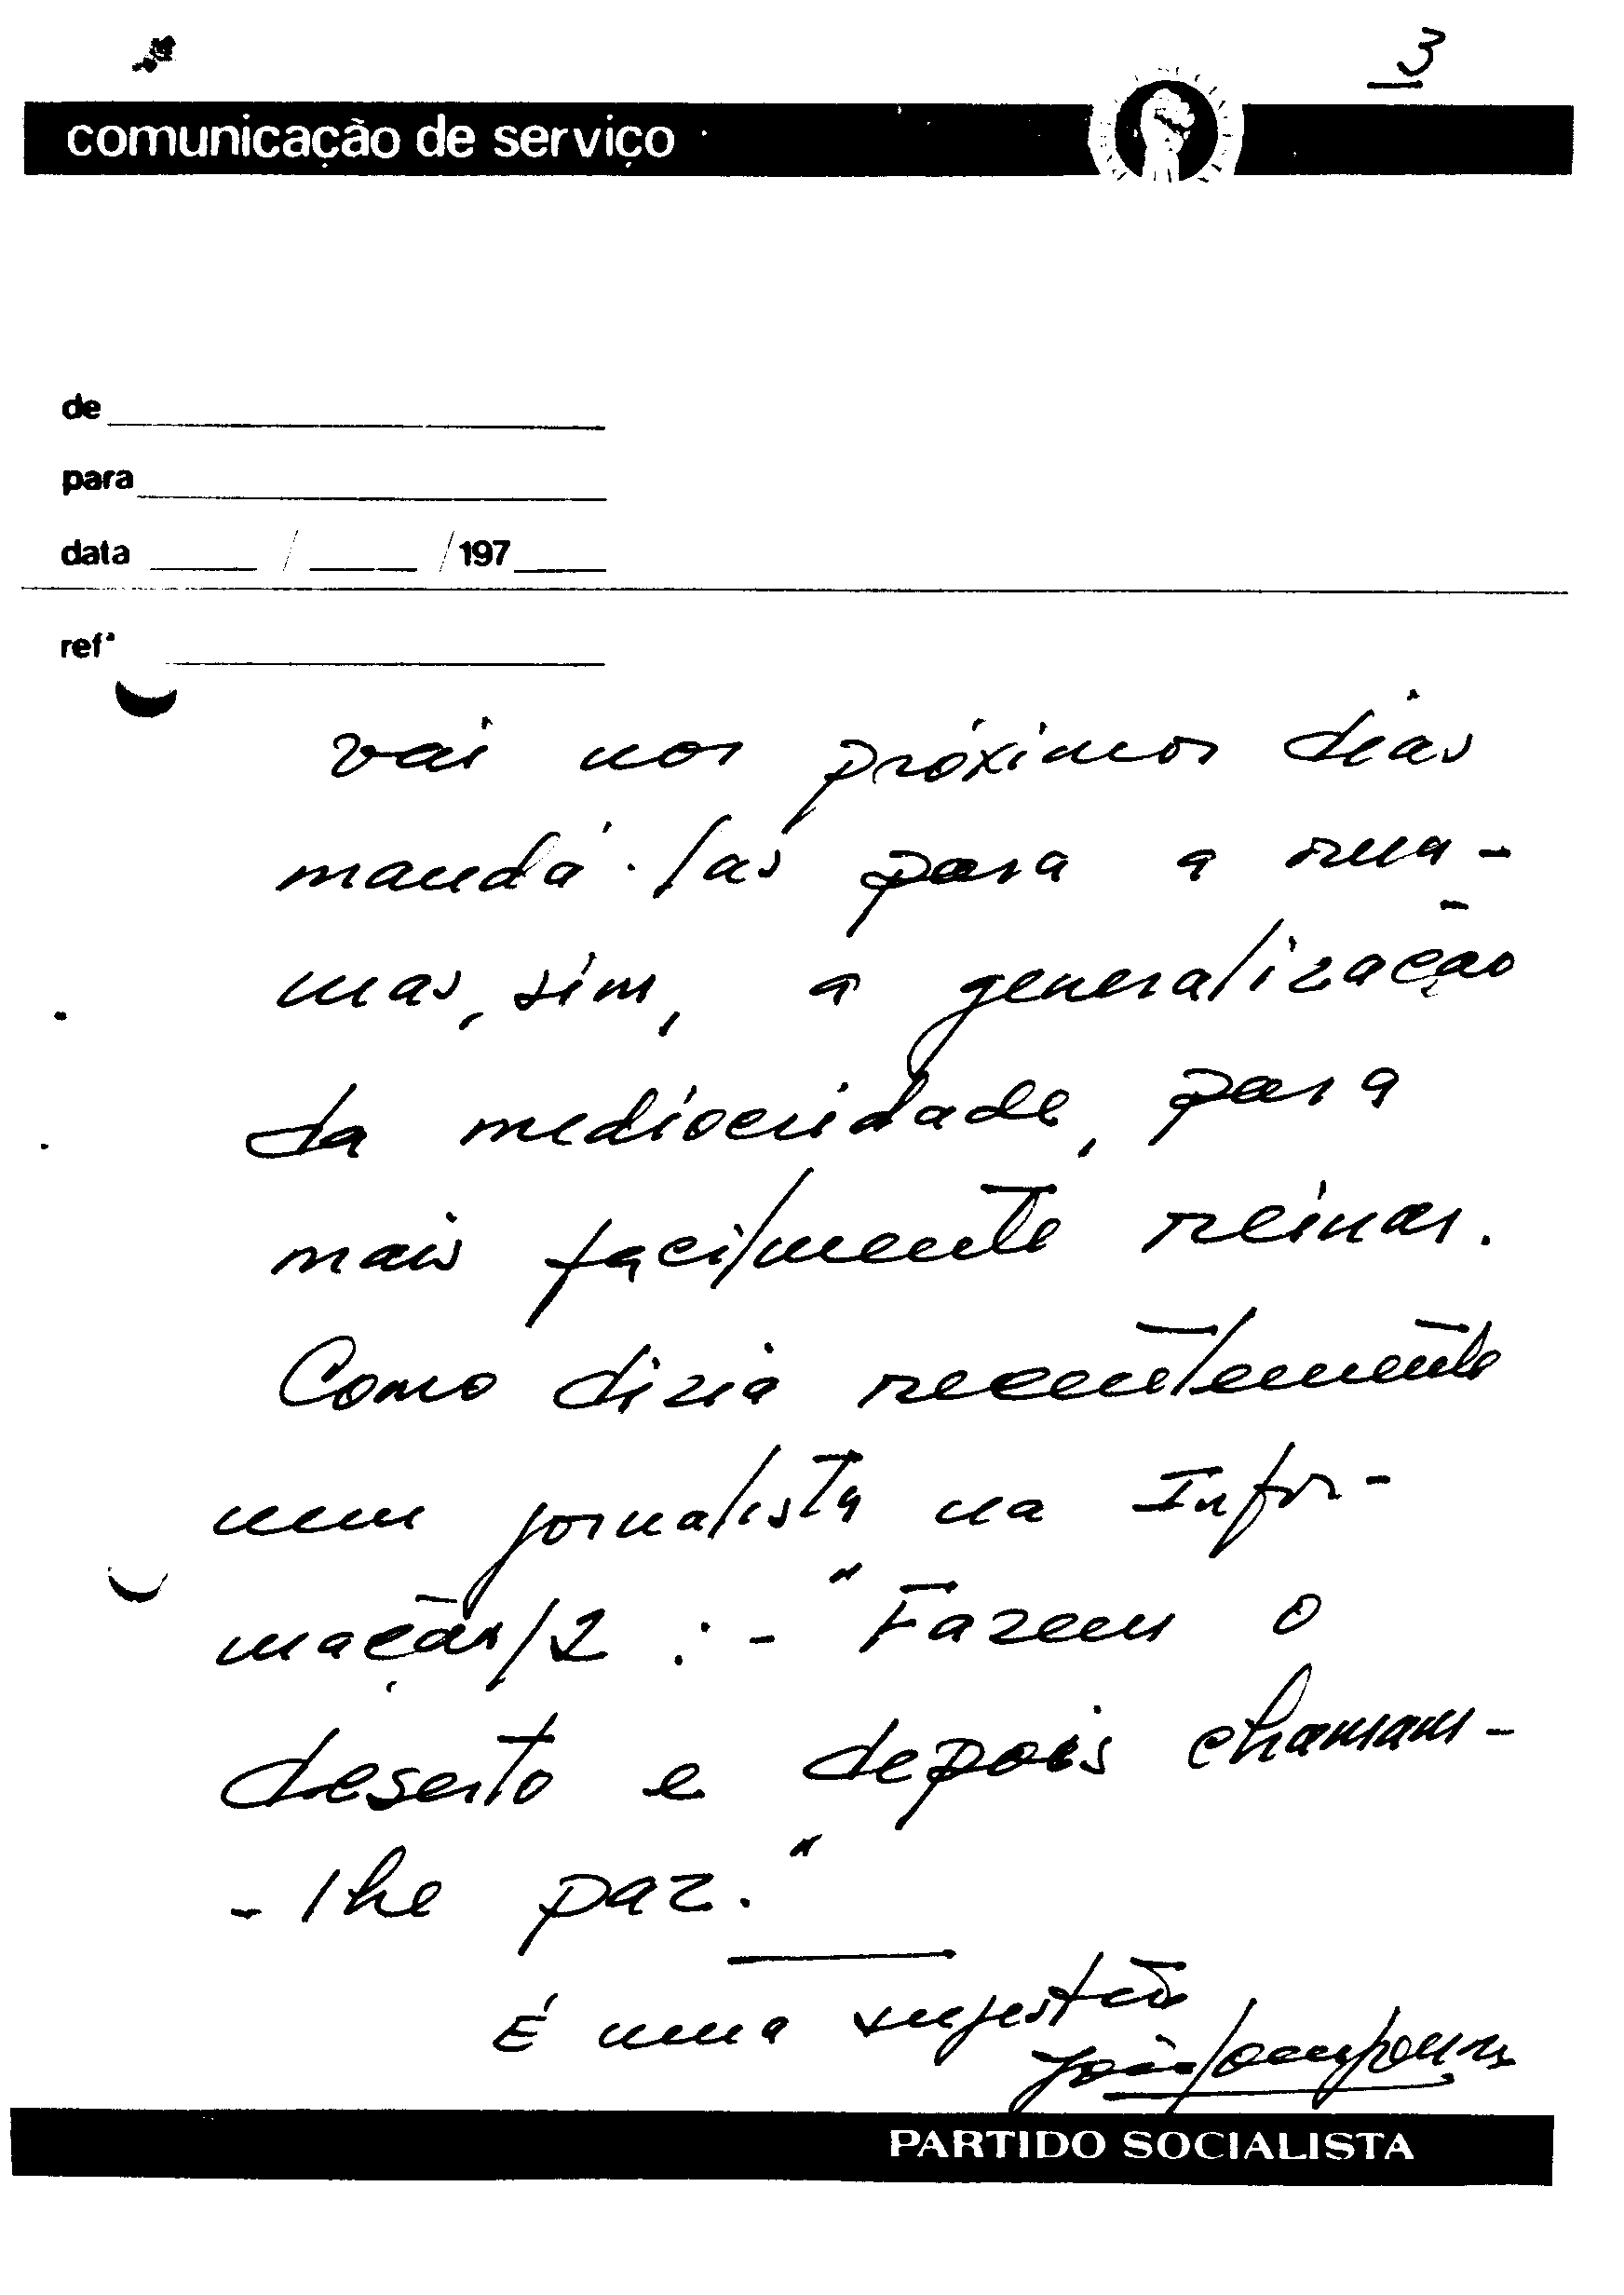 3
comunicação de serviço
de
para
data / /197
refª
vai nos próximos dias
mandá-las para a rua -
mas, sim, a generalização
da mediocridade, para
mais facilmente reinar.
Como dizia recentemente
um jornalista na Infor-
mação/2 :- "Fazem o
deserto e depois chamam-
-lhe paz."
É uma sugestão
João
PARTIDO SOCIALISTA